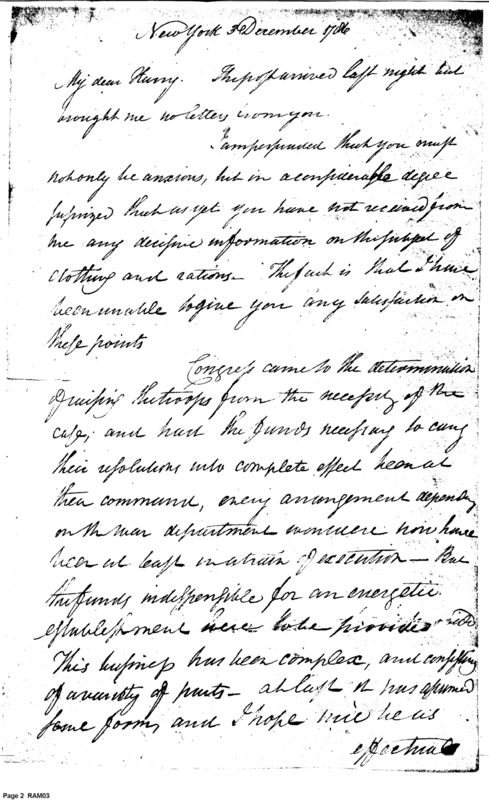 New York 3 December 1786
My dear Harry. The post arrived last night but
brought me no letters from you.
I am perswaded that you must
not only be anxious, but in a considerable degree
surprized that as yet you have not received from
me any decisive information on the subject of
clothing and rations— The fact is that I have
been unable to give you any satisfaction on
these points
Congress came to the determination
of raising the troops from the necessity of the
case, and had the funds necessary to carry
their resolutions into complete effect been at
their command, every arrangement depending
on the war department would ere now have
been at least in a train of execution — But
the funds indispensible for an energetic
establishment were to be provided
This business has been complex, and consisting
of a variety of parts— at last it has assumed
some form, and I hope will be as
effectual
Page 2 RAM03